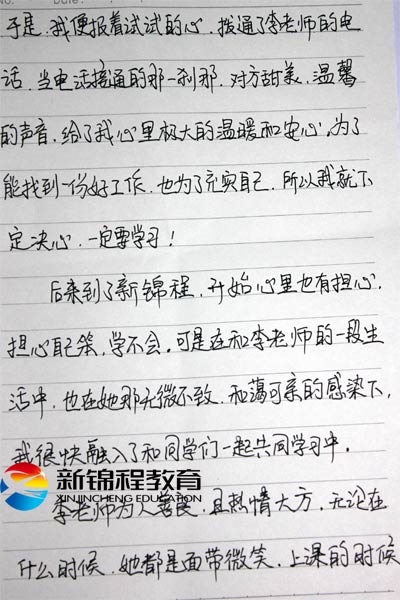 于是.我便报着试试的心.拨通了李老师的电
话.当电话接通的那一刹那.对方甜美、温馨
的声音.给了我心里极大的温暖和安心.为了
能找到一份好工作.也为了充实自己.所以我就下
定决心.一定要学习!
后来到了新锦程.开始心里也有担心.
担心自己笨.学不会.可是在和李老师的一段生
活中.也在她那无微不致.和蔼可亲的感染下.
我很快融入了和同学们一起共同学习中.
新锦程教育
XINJINCHENG EDUCATION
李老师为人善良.且热情大方.无论在
什么时候.她都是面带微笑.上课的时候